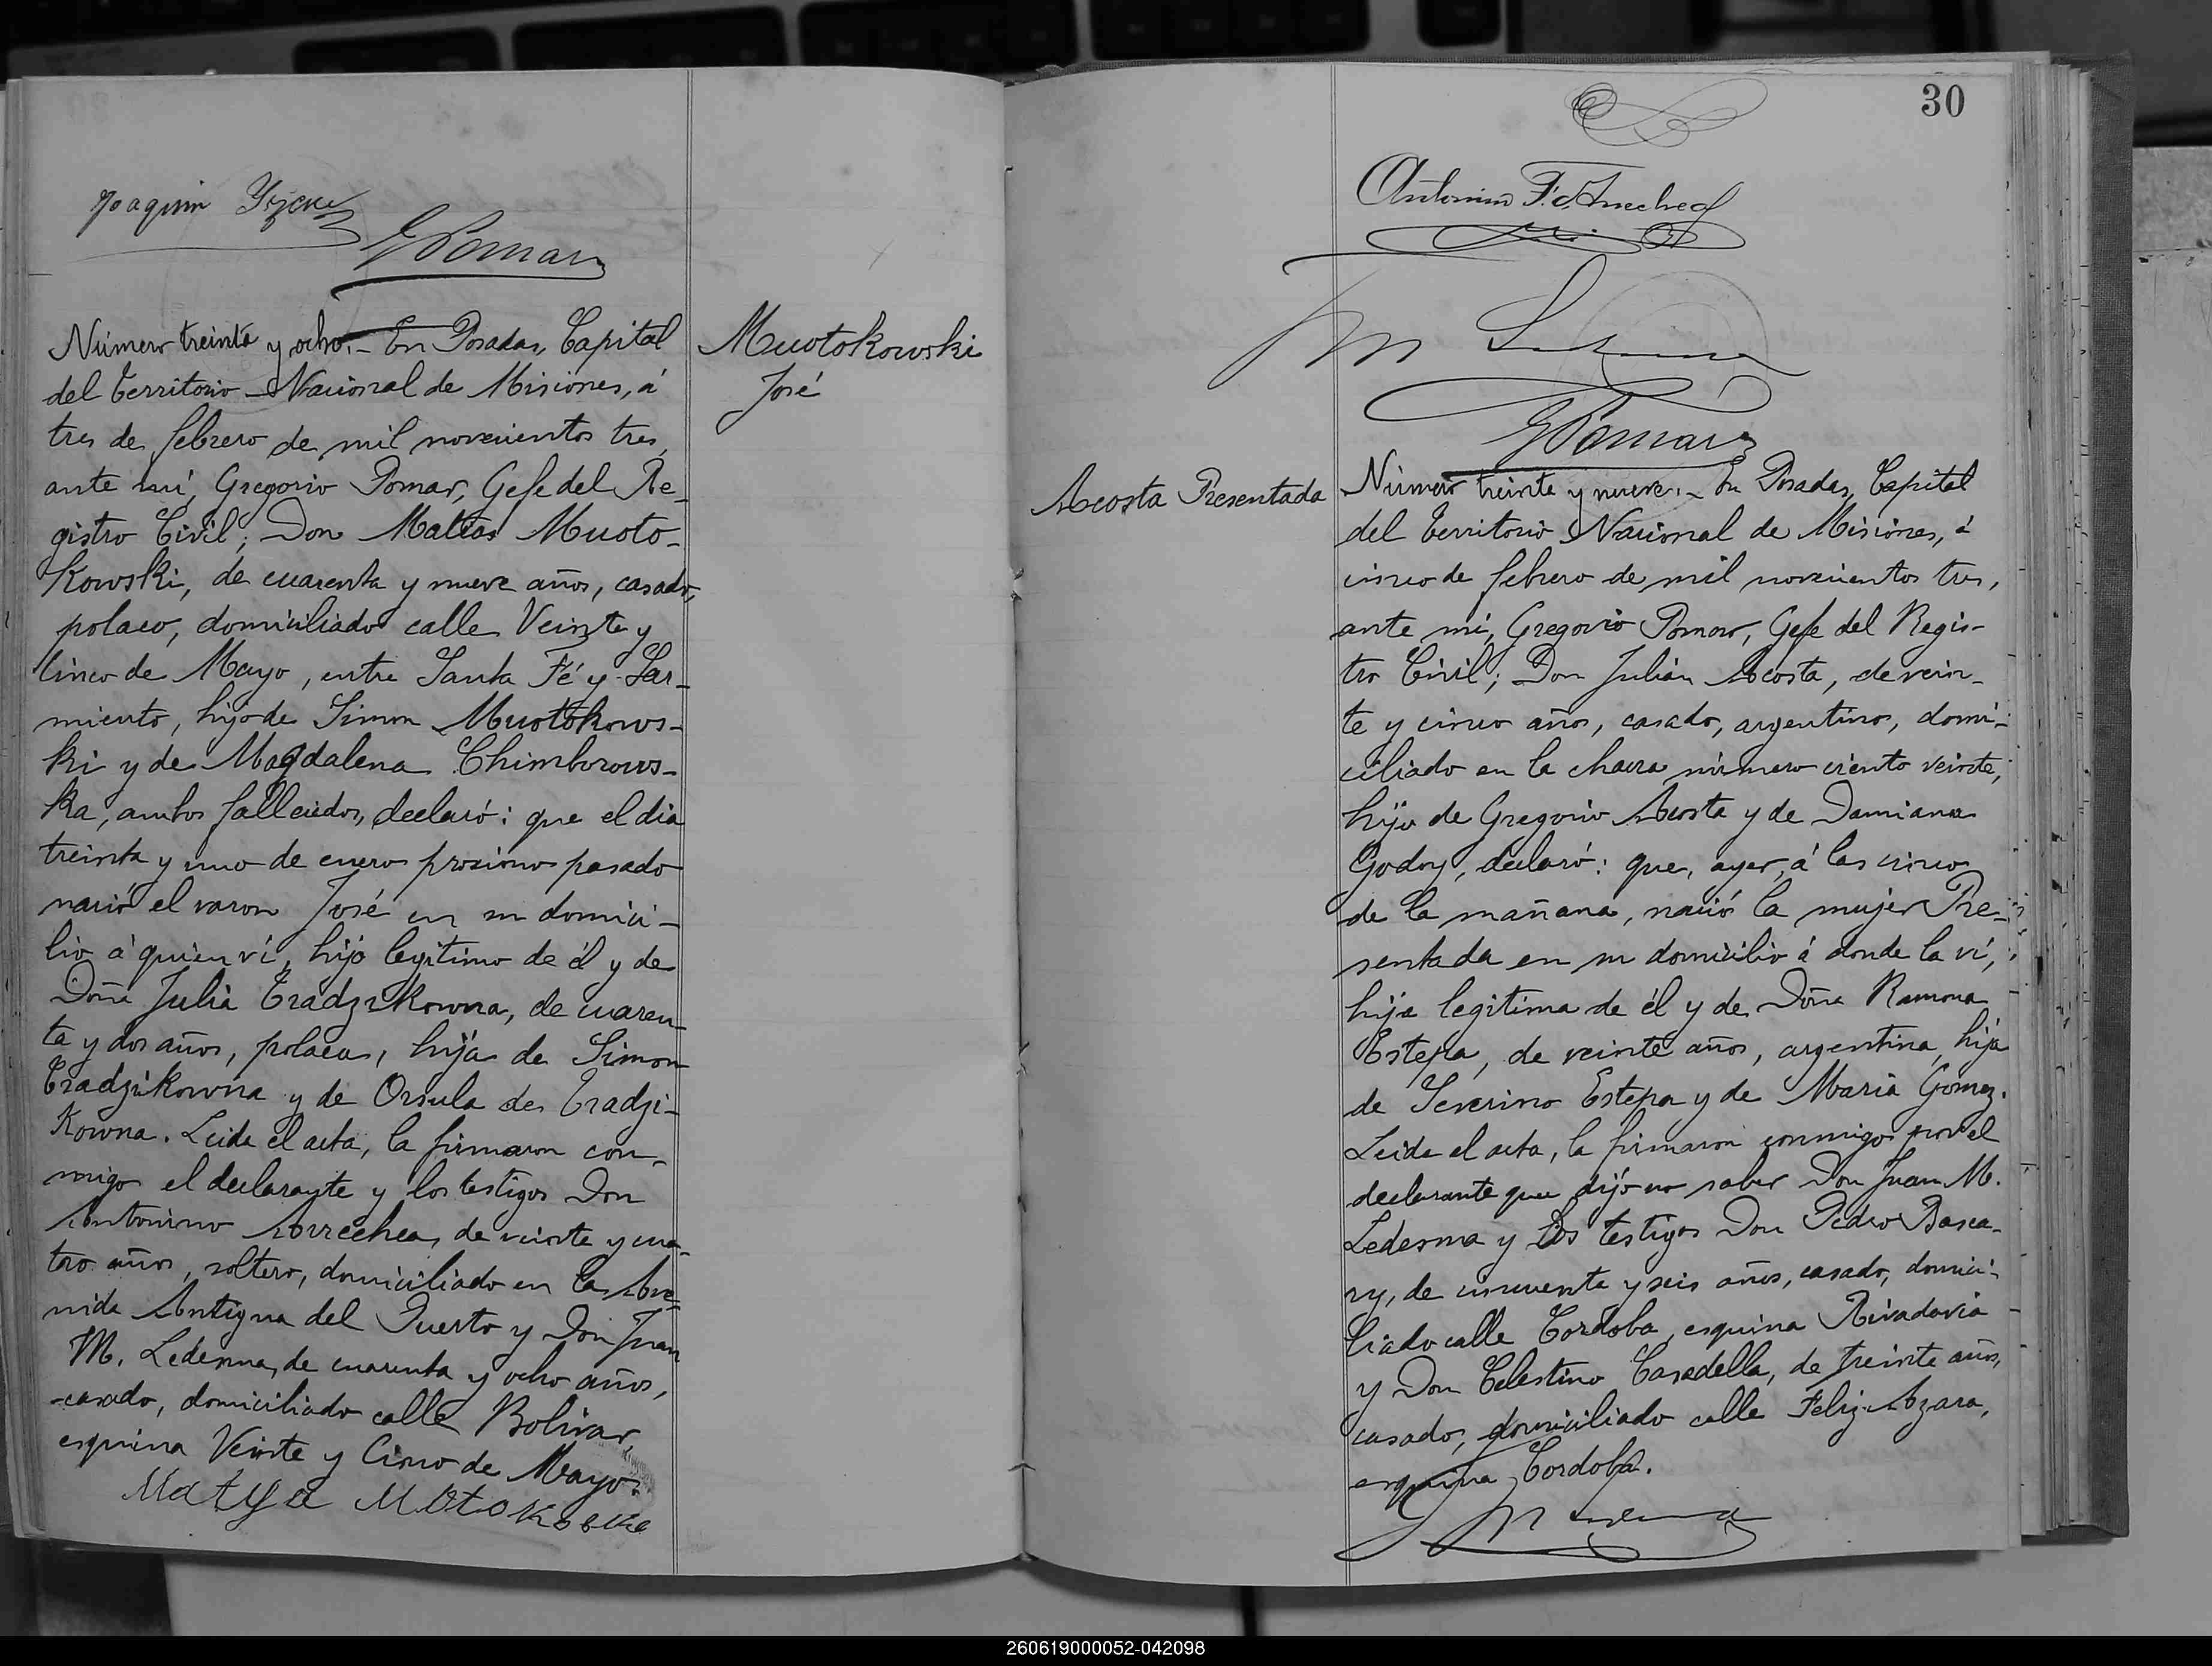 Joaquin
G Pomar
Número treinta y ocho.- En Posadas, Capital
del Territorio Nacional de Misiones, á
tres de febrero de mil novecientos tres,
ante mí, Gregorio Pomar, Gefe del Re-
gistro Civil; Don Matias Muoto-
kowski, de cuarenta y nueve años, casado,
polaco, domiciliado calle Veinte y
Cinco de Mayo, entre Santa Fé y Sar-
miento, hijo de Simon Muotokows-
ki y de Magdalena Chimborows-
ka, ambos fallecidos, declaró: que el dia
treinta y uno de enero proximo pasado
nació el varon José en su domici-
lio á quien ví, hijo legitimo de él y de
Doña Julia Tradzikowna, de cuaren-
ta y dos años, polaca, hija de Simon
Tradzikowna y de Orsula de Tradzi-
kowna. Leida el acta, la firmaron con-
migo el declarante y los testigos Don
Antonino Arrechea, de veinte y cua-
tro años, soltero, domiciliado en la Ave-
nida Antigua del Puerto y Don Juan
M. Ledesma, de cuarenta y ocho años,
casado, domiciliado calle Bolivar,
esquina Veinte y Cinco de Mayo.
Matya Motokoski
Muotokowski
José
30
Antonino F. d. Arrechea
J M Ledesma
G Pomar
Acosta Presentada
Número treinta y nueve.- En Posadas, Capital
del Territorio Nacional de Misiones, á
cinco de febrero de mil novecientos tres,
ante mí, Gregorio Pomar, Gefe del Regis-
tro Civil; Don Julián Acosta, de vein-
te y cinco años, casado, argentino, domi-
ciliado en la chacra número ciento veinte,
hijo de Gregorio Acosta y de Damiana
Godoy, declaró: que, ayer, á las cinco
de la mañana, nació la mujer Pre-
sentada en su domicilio á donde la ví,
hija legitima de él y de Doña Ramona
Estepa, de veinte años, argentina, hija
de Severino Estepa y de Maria Gomez.
Leida el acta, la firmaron conmigo por el
declarante que dijo no saber Don Juan M.
Ledesma y los testigos Don Pedro Basca-
ry, de cincuenta y seis años, casado, domici-
liado calle Cordoba, esquina Rivadavia
y Don Celestino Casadella, de treinta años,
casado, domiciliado calle Feliz Azara,
esquina Cordoba.
J M Ledesma
260619000052-042098